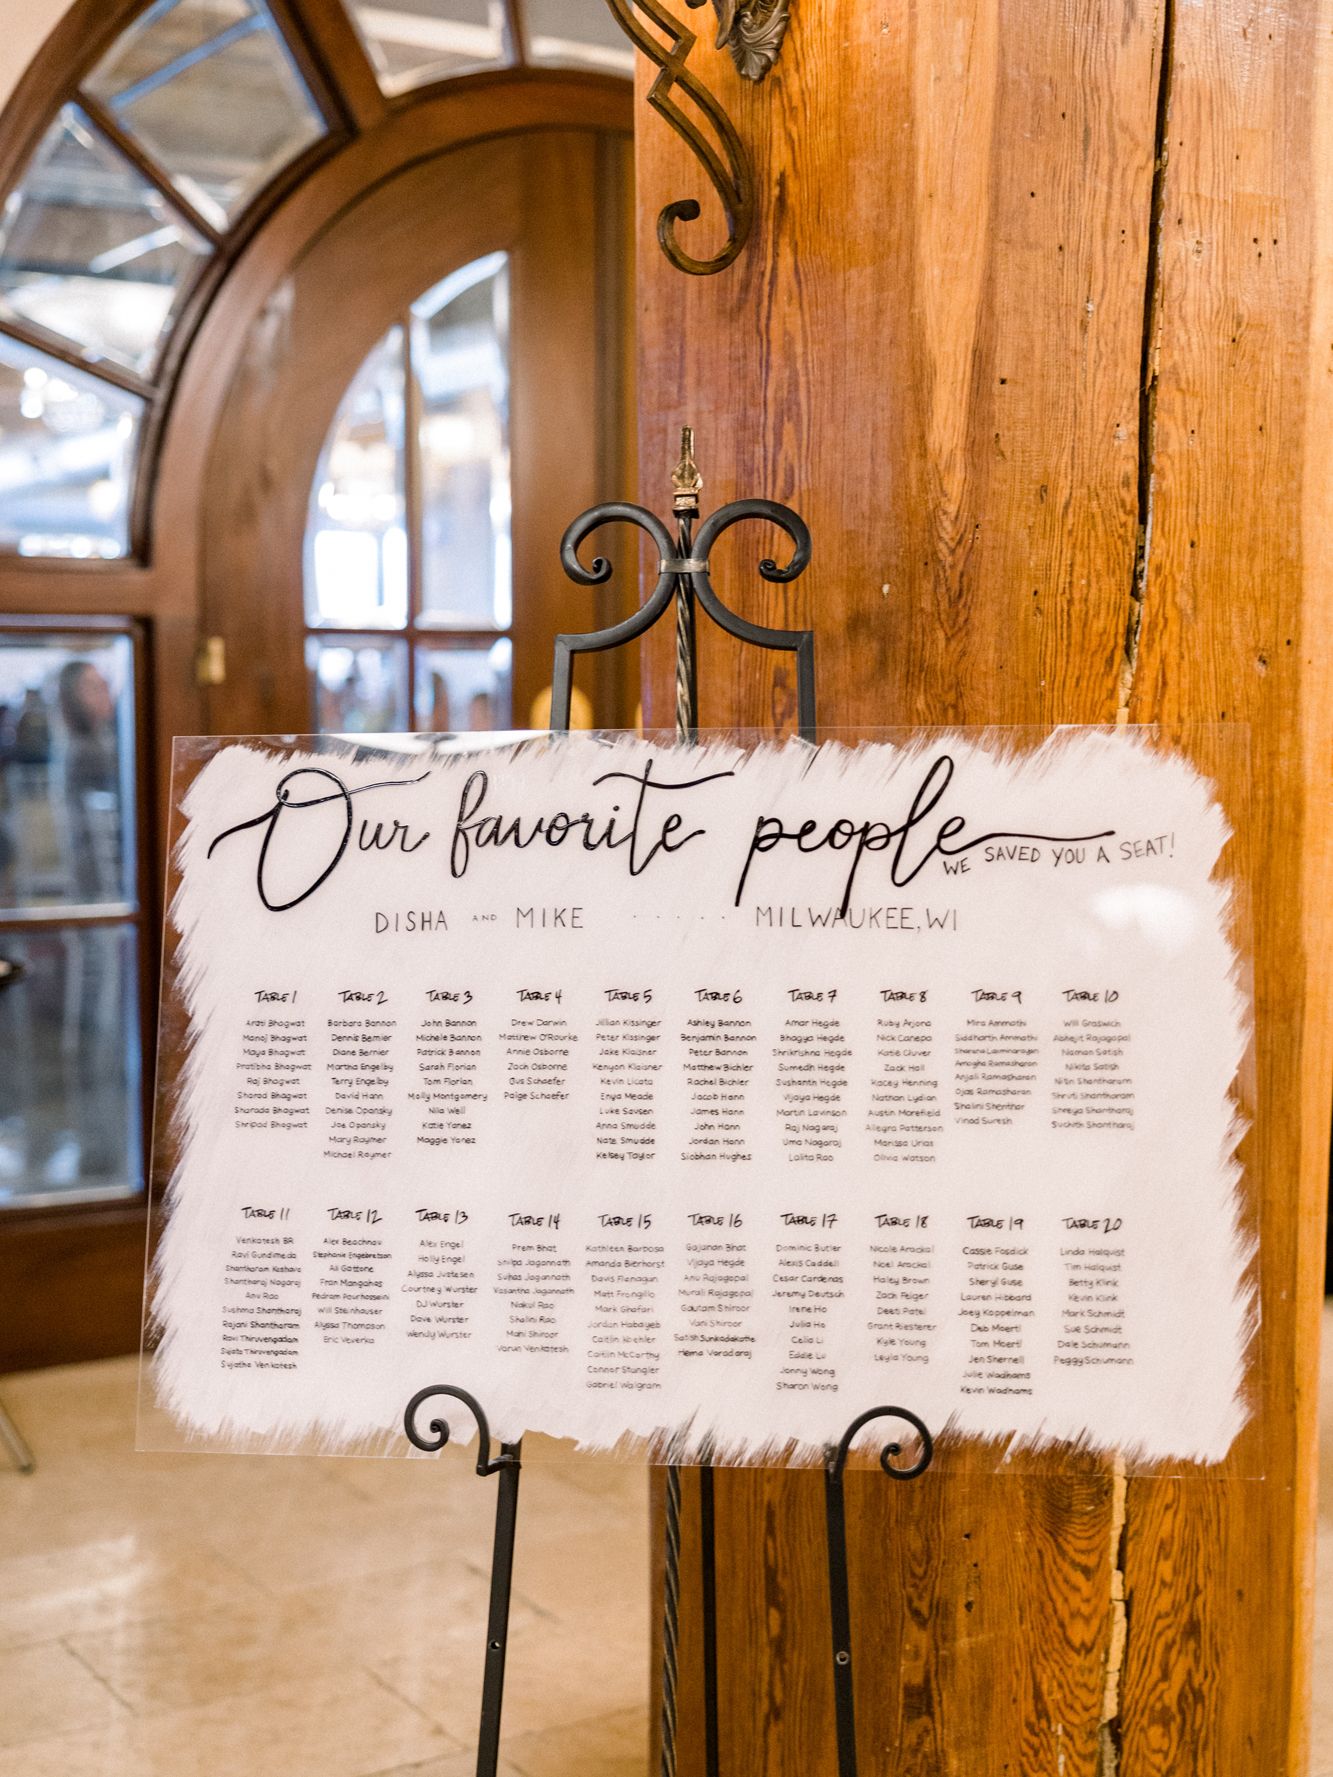 Our favorite people
WE SAVED YOU A SEAT!
DISHA AND MIKE . . . . . MILWAUKEE, WI
TABLE 1
Arati Bhagwat
Manoj Bhagwat
Maya Bhagwat
Pratibha Bhagwat
Raj Bhagwat
Sharad Bhagwat
Sharada Bhagwat
Shripad Bhagwat
TABLE 2
Barbara Bannon
Dennis Bernier
Diane Bernier
Martha Engelby
Terry Engelby
David Hann
Denise Opansky
Joe Opansky
Mary Raymer
Michael Raymer
TABLE 3
John Bannon
Michele Bannon
Patrick Bannon
Sarah Florian
Tom Florian
Molly Montgomery
Nila Well
Katie Yanez
Maggie Yanez
TABLE 4
Drew Darwin
Matthew O'Rourke
Annie Osborne
Zach Osborne
Gus Schaefer
Paige Schaefer
TABLE 5
Jillian Kissinger
Peter Kissinger
Jake Klaisner
Kenyon Klaisner
Kevin Licata
Enya Meade
Luke Savsen
Anna Smudde
Nate Smudde
Kelsey Taylor
TABLE 6
Ashley Bannon
Benjamin Bannon
Peter Bannon
Matthew Bichler
Rachel Bichler
Jacob Hann
James Hann
John Hann
Jordan Hann
Siobhan Hughes
TABLE 7
Amar Hegde
Bhagya Hegde
Shrikrishna Hegde
Sumedh Hegde
Sushanth Hegde
Vijaya Hegde
Martin Lavinson
Raj Nagaraj
Uma Nagaraj
Lalita Rao
TABLE 8
Ruby Arjona
Nick Canepa
Katie Cluver
Zack Hall
Kacey Henning
Nathan Lydian
Austin Morefield
Allegra Patterson
Marissa Urias
Olivia Watson
TABLE 9
Mira Ammathi
Siddharth Ammathi
Sharana Laxminarayan
Amogha Ramasharan
Anjali Ramasharan
Ojas Ramasharan
Shalini Shenthar
Vinod Suresh
TABLE 10
Will Graswich
Abhejit Rajagopal
Naman Satish
Nikita Satish
Nitin Shantharam
Shruti Shantharam
Shreya Shantharaj
Suchith Shantharaj
TABLE 11
Venkatesh BR
Ravi Gundimeda
Shantharam Keshava
Shantharaj Nagaraj
Anu Rao
Sushma Shantharaj
Rajani Shantharam
Ravi Thiruvengadam
Sujata Thiruvengadam
Sujatha Venkatesh
TABLE 12
Alex Beachnau
Stephanie Engebretson
Ali Gattone
Fran Mangahas
Pedram Pourhosseini
Will Steinhauser
Alyssa Thompson
Eric Veverka
TABLE 13
Alex Engel
Holly Engel
Alyssa Justesen
Courtney Wurster
DJ Wurster
Dave Wurster
Wendy Wurster
TABLE 14
Prem Bhat
Shilpa Jagannath
Suhas Jagannath
Vasantha Jagannath
Nakul Rao
Shalini Rao
Mani Shiroor
Varun Venkatesh
TABLE 15
Kathleen Barbosa
Amanda Bierhorst
Davis Flanagan
Matt Frangillo
Mark Ghafari
Jordan Habayeb
Caitlin Koehler
Caitlin McCarthy
Connor Stangler
Gabriel Walgram
TABLE 16
Gajanan Bhat
Vijaya Hegde
Anu Rajagopal
Murali Rajagopal
Gautam Shiroor
Vani Shiroor
Satish Sunkadakatte
Hema Varadaraj
TABLE 17
Dominic Butler
Alexis Caddell
Cesar Cardenas
Jeremy Deutsch
Irene Ho
Julia Ho
Celia Li
Eddie Lu
Jonny Wong
Sharon Wong
TABLE 18
Nicole Arackal
Noel Arackal
Haley Brown
Zach Feiger
Deeti Patel
Grant Riesterer
Kyle Young
Leyla Young
TABLE 19
Cassie Fosdick
Patrick Guse
Sheryl Guse
Lauren Hibbard
Joey Koppelman
Deb Moertl
Tom Moertl
Jen Shernell
Julie Wadhams
Kevin Wadhams
TABLE 20
Linda Halquist
Tim Halquist
Betty Klink
Kevin Klink
Mark Schmidt
Sue Schmidt
Dale Schumann
Peggy Schumann